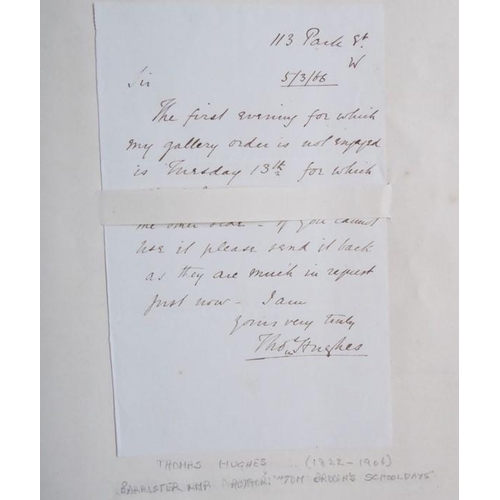 113 Park St.
W
Sir
5/3/66
The first evening for which
my gallery order is not engaged
is Tuesday 13th for which
If you cannot
use it please send it back
as they are much in request
just now - I am
yours very truly
Thos Hughes
THOMAS HUGHES (1822-1906)
BARRISTER "TOM BROWN'S SCHOOLDAYS"